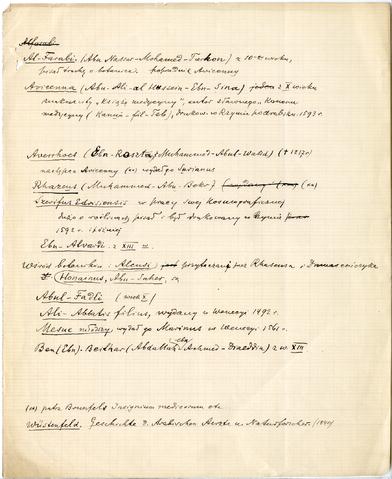 Alfarabi
Al-Farabi (Abu Nassr-Mohamed-Tarkon) z 10-go wieku,
pisał trochę o botanice. poprzednik Avicenny
Avicenna (Abu-Ali-al Hussein-Ebn-Sina) jeden z X wieku
znakomity, książę medycyny", autor sławnego Kanonu
medycyny (Kanun-fil-Teb), drukow. w Rzymie po arabsku 1593 r.
Averrhoes (Ebn-Roszta) Muhammed-Abul-Walid) (+1217)
następca Avicenny (xx) wydał go Jarianus
Rhazeus (Muhammed-Abu-Bekr) (xx)
Szeriful Edrisiensis w pracy swej Kosmograficznej
dużo o roślinach pisał i był drukowany w Rzymie
1592 r. i później
Ebn-Alvardi z XIII w.
Wśród botaników: Alcensi przytoczony przez Rhazeusa i Damasceńczyka
Honainus, Abu-Taher,
Abul-Fadli (wiek X)
Ali-Abbatis filius, wydany w Wenecji 1492 r.
Mesue młodszy, wydał go Marinus w Wenecji 1561 r.
Ben (Ebn)-Beithar (Abdallah Achmed-Dhiaeddin) z w. XIII
(xx) patrz Brunfels Insignium medicorum etc
Wüstenfeld. Geschichte d. Arabischen Aerzte u. Naturforscher. (1840)